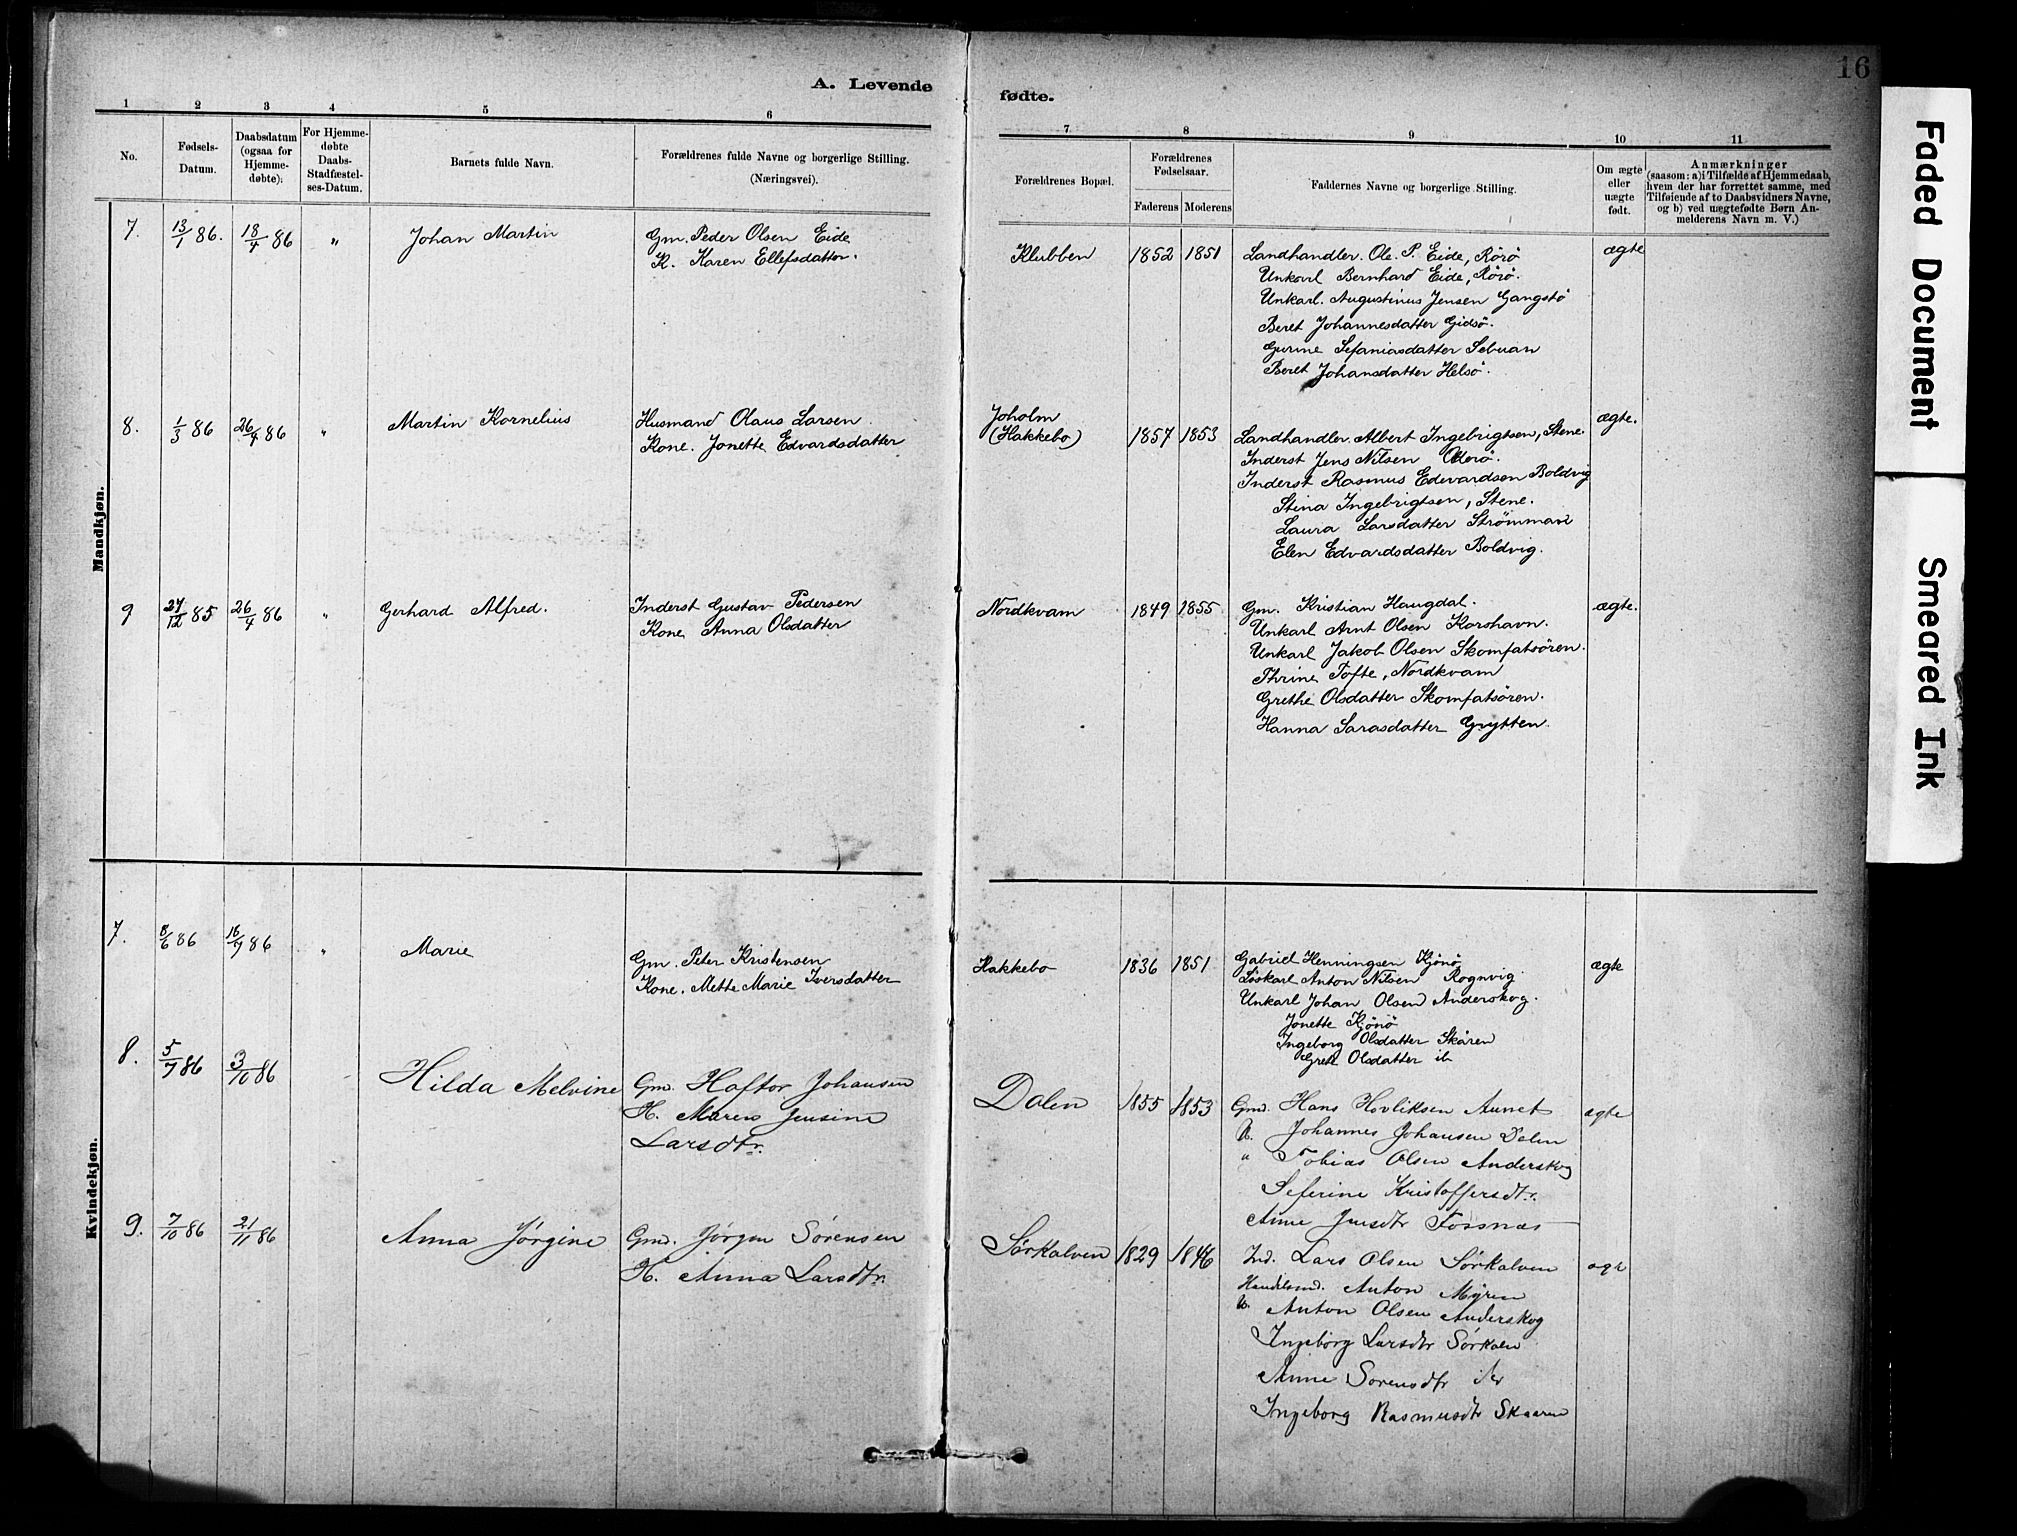 16
A. Levende fødte.
1 2 3 4 5 6 7 8 9 10 11
No.
Fødsels-Datum.
Daabsdatum (ogsaa for Hjemme-døbte).
For Hjemme-døbte Daabs-Stadfæstel-ses-Datum.
Barnets fulde Navn.
Forældrenes fulde Navne og borgerlige Stilling. (Næringsvei).
Forældrenes Bopæl.
Forældrenes Fødselsaar.
Faderens Moderens
Faddernes Navne og borgerlige Stilling.
Om ægte eller uægte født.
Anmærkninger
(saasom: a) i Tilfælde af Hjemmedaab,
hvem der har forrettet samme, med
Tilføiende af to Daabsvidners Navne,
og b) ved uægtefødte Børn An-
melderens Navn m. V.)
Mandkjøn.
7. 13/1 86. 18/4 86 " Johan Martin
Gm. Peder Olsen Eide
K. Karen Ellefsdatter.
Klubben 1852 1851
Landhandler. Ole. P. Eide, Rörö
Unkarl Bernhard Eide, Rörö.
Unkarl. Augustinus Jensen Gangstö
Beret Johannesdatter Gidsö.
Gurine Sefaniasdatter Sebuan
Beret Johansdatter Helsö.
ægte
8. 1/3 86 26/4 86 " Martin Kornelius
Husmand Olaus Larsen
Kone. Jonette Edvardsdatter
Joholm
(Hakkebo) 1857 1853
Landhandler. Albert Ingebrigtsen, Stene.
Inderst Jens Nilsen
Inderst Rasmus Edevardsen Boldvig
Stina Ingebrigtsen, Stene.
Laura Larsdatter Strömman
Elen Edvardsdatter Boldvig.
ægte.
9 27/12 85 26/4 86 " Gerhard Alfred.
Inderst Gustav Pedersen
Kone Anna Olsdatter
Nordkvam 1849 1855
Gm. Kristian Haugdal.
Unkarl Arnt Olsen Korshavn.
Unkarl Jakob Olsen Skomfatsören.
Thrine Tofte, Nordkvam
Grethe Olsdatter Skomfatsören.
Hanna Sarasdatter Grytten.
ægte.
Kvindekjøn.
7. 8/6 86 16/7 86 " Marie
Gm. Peter Kristensen
Kone. Mette Marie Iversdatter
Hakkebo 1836 1851
Gabriel Henningsen Kjönö
Löskarl Anton Nilsen Rognvig
Unkarl Johan Olsen Anderskog.
Jonette Kjönö
Ingeborg Olsdatter Skåren
Grete Olsdatter ib
ægte
8. 5/7 86 3/10 86 Hilda Melvine
Gm. Haftor Johansen
H. Maren Jensine
Larsdtr.
Dalen 1855 1853
Gmd. Hans Hovliksen Aunet
U. Johannes Johansen Dalen
" Tobias Olsen Anderskog
Seferine Kristoffersdtr.
Anne Jensdtr Fossnas
ægte
9. 7/10 86 21/11 86 Anna Jørgine
Gmd. Jørgen Sørensen
H. Anna Larsdtr.
Sørkalven 1829 1846
Ind. Lars Olsen Sørkalven
Handelsmd. Anton Myren
U. Anton Olsen Anderskog
Ingeborg Larsdtr Sørkalv
Anne Sorensdtr
Ingeborg Rasmusdtr Skaaren
ægte
Faded Document
Smeared Ink